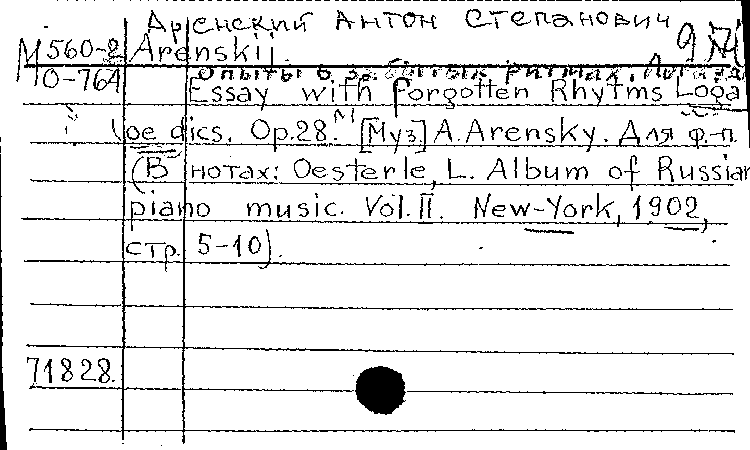 Аренский Антон Степанович
М560-2 Arenskij.
О-764 Опыты в забытых ритмах.
Essay with forgotten Rhytms Loga
oe dics. Op.28. [Муз] A.Arensky. Для ф.-п.
(В нотах: Oesterle, L. Album of Russian
piano music. Vol. II. New-York, 1902,
стр. 5-10).
71828.